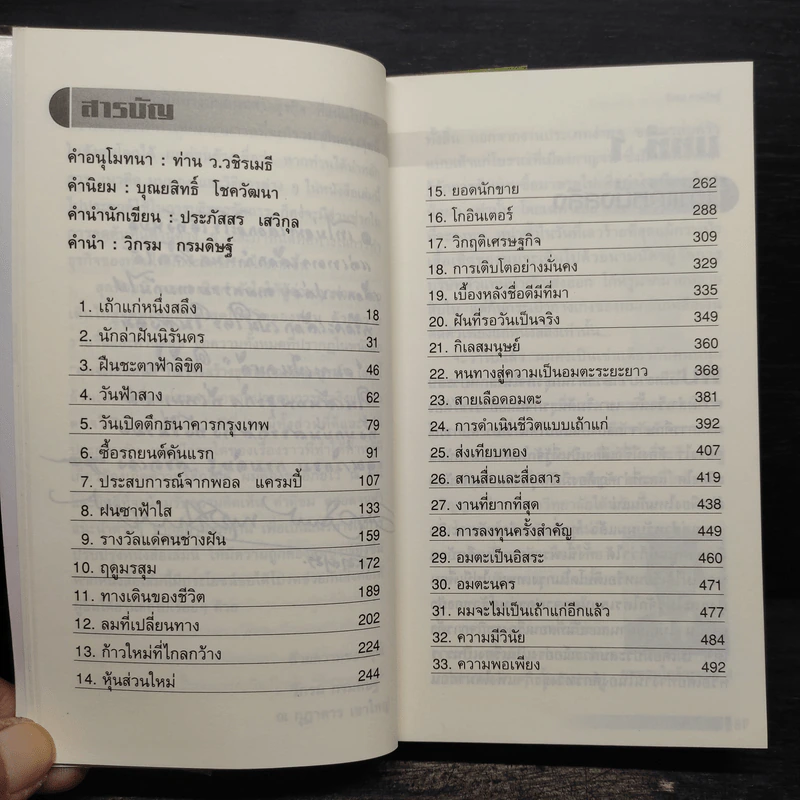 สารบัญ
คำอนุโมทนา : ท่าน ว.วชิรเมธี
คำนิยม : บุณยสิทธิ์ โชควัฒนา
คำนำนักเขียน : ประภัสสร เสวิกุล
คำนำ : วิกรม กรมดิษฐ์
1. เถ้าแก่หนึ่งสลึง 18
2. นักล่าฝันนิรันดร 31
3. ฝืนชะตาฟ้าลิขิต 46
4. วันฟ้าสาง 62
5. วันเปิดตึกธนาคารกรุงเทพ 79
6. ซื้อรถยนต์คันแรก 91
7. ประสบการณ์จากพอล แครมปี้ 107
8. ฝนซาฟ้าใส 133
9. รางวัลแด่คนช่างฝัน 159
10. ฤดูมรสุม 172
11. ทางเดินของชีวิต 189
12. ลมที่เปลี่ยนทาง 202
13. ก้าวใหม่ที่ไกลกว้าง 224
14. หุ้นส่วนใหม่ 244
15. ยอดนักขาย 262
16. โกอินเตอร์ 288
17. วิกฤติเศรษฐกิจ 309
18. การเติบโตอย่างมั่นคง 329
19. เบื้องหลังชื่อดีมีที่มา 335
20. ฝันที่รอวันเป็นจริง 349
21. กิเลสมนุษย์ 360
22. หนทางสู่ความเป็นอมตะระยะยาว 368
23. สายเลือดอมตะ 381
24. การดำเนินชีวิตแบบเถ้าแก่ 392
25. ส่งเทียบทอง 407
26. สานสื่อและสื่อสาร 419
27. งานที่ยากที่สุด 438
28. การลงทุนครั้งสำคัญ 449
29. อมตะเป็นอิสระ 460
30. อมตะนคร 471
31. ผมจะไม่เป็นเถ้าแก่อีกแล้ว 477
32. ความมีวินัย 484
33. ความพอเพียง 492